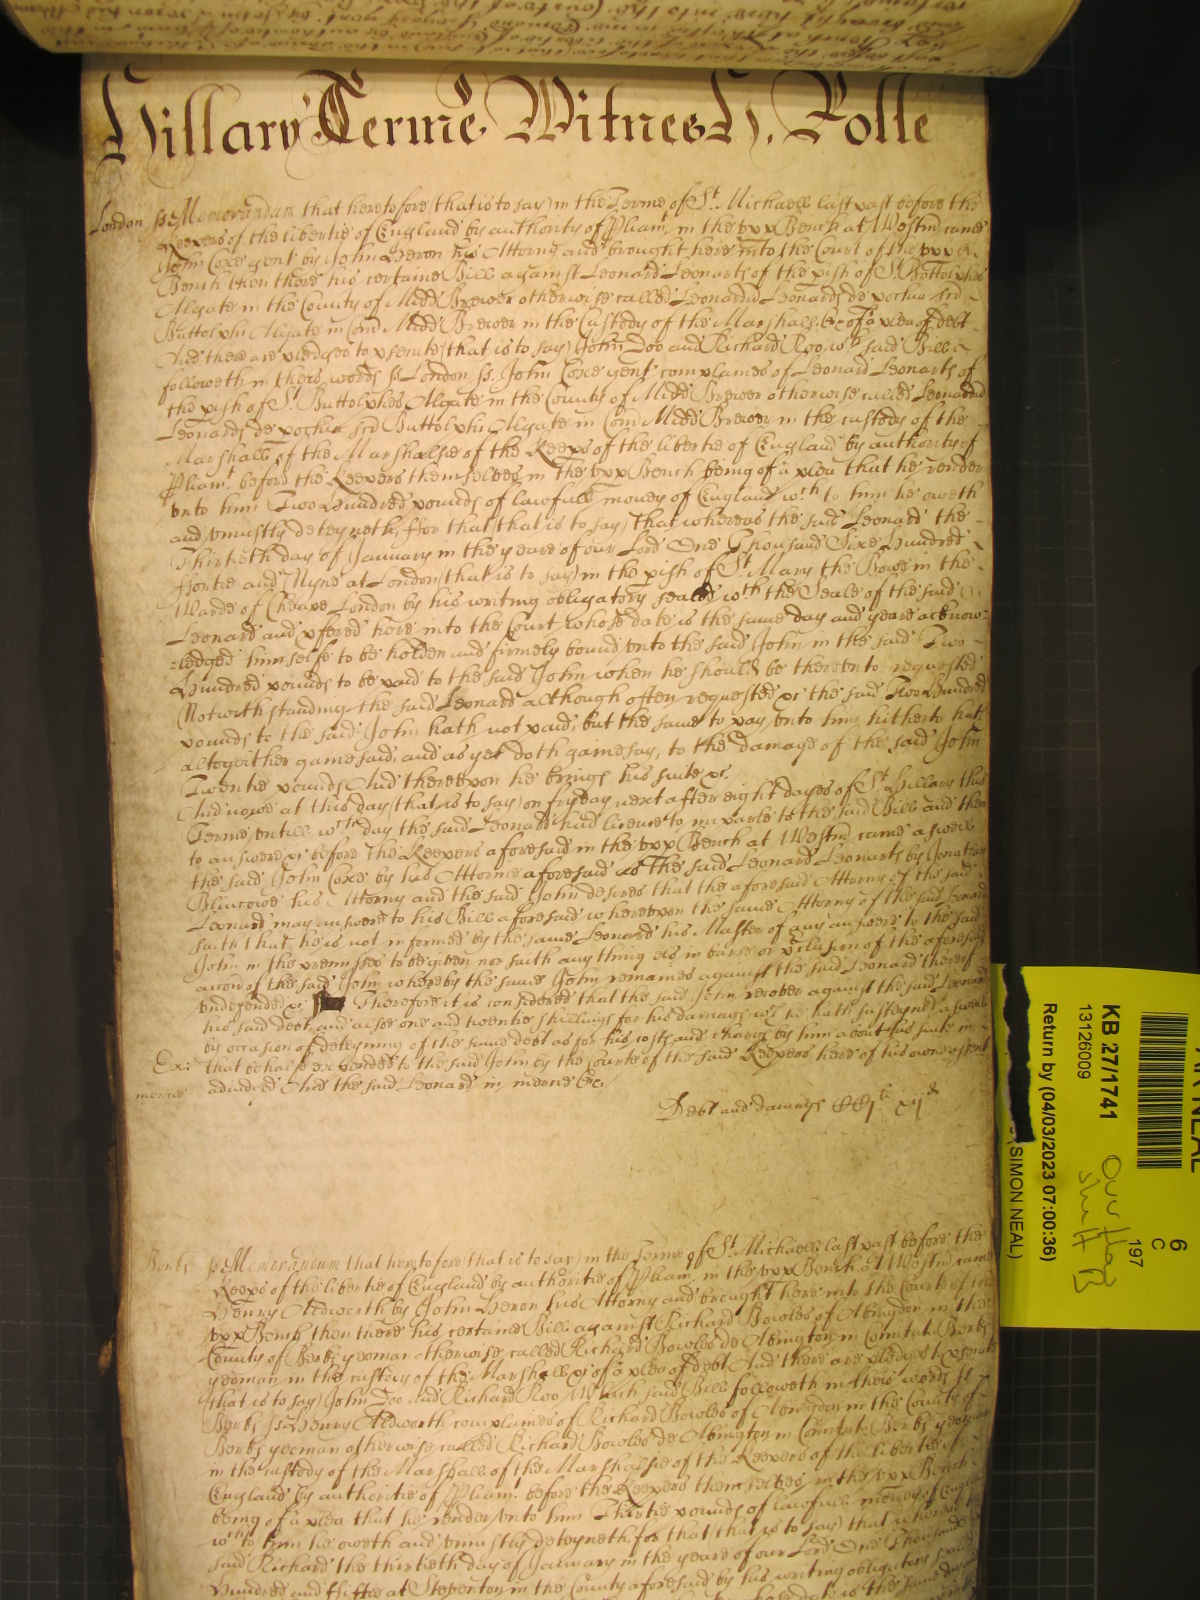 Hillary Terme Witnes H. Rolle
London ss Memorandum that heretofore (that is to say) in the Terme of St. Michaell last past before the
Keepers of the libertie of England by authority of Pliamt. in the vpp Bench at Westm came
John Coxe gent by John Heron his Attorny and brought here into the Court of the vpp
Bench then there his certaine Bill against Leonard Leonarts of the pish of St. Buttolphes
Algate in the County of Midd Brewer otherwise called Leonardu Leonards de pochia sci
Buttolphi Algate in Com Midd Brewer in the Custody of the Marshall &c of a plea of debt
And there are pledges to psecute (that is to say) John Doo and Richard Roo wch said Bill
followeth in theis words ss London ss. John Coxe gent complaines of Leonard Leonarts of
the pish of St. Buttolphes Algate in the County of Midd Brewer otherwise called Leonardu
Leonards de pochia sci Buttolphi Algate in Com Midd Brewer in the custody of the
Marshall of the Marshalsie of the Keeps of the libertie of England by authority of
Pliamt. before the Keepers themselves in the vpp Bench being of a plea that he render
vnto him Two Hundred pounds of lawfull money of England wch to him he oweth
and vniustly deteyneth, ffor that (that is to say) That whereas the said Leonard the
Thirtieth day of January in the yeare of our Lord One Thousand Sixe Hundred
ffortie and Nyne at London (that is to say) in the pish of St. Mary the Bowe in the
Warde of Cheape London by his writing obligatory sealed wth the Seale of the said
Leonard and pfered here into the Court whose date is the same day and yeare acknow=
=ledged himselfe to be holden and firmely bound vnto the said John in the said Two
Hundred pounds to be paid to the said John when he should be therevnto requested
Notwithstanding the said Leonard although often requested &c the said Two Hundred
pounds to the said John hath not paid, but the same to pay vnto him hitherto hath
altogether gainesaid, and as yet doth gainesay, to the damage of the said John
Twentie pounds And therevpon he brings his suite &c.
And nowe at this day (that is to say) on fryday next after eight dayes of St. Hillary this
Terme vntill wch day the said Leonard had licence to imparle to the said Bill and then
to answere &c before the Keepers aforesaid in the vpp Bench at Westm came aswell
the said John Coxe by his Attorny aforesaid as the said Leonard Leonarts by Jonathan
his Attorny and the said John desires that the aforesaid Attorny of the said
Leonard may answere to his Bill aforesaid wherevpon the same Attorny of the said Leonard
saith that he is not informed by the same Leonard his Master of any answere to the said
John in the premisses to be given nor saith any thing els in barre or pclusion of the aforesaid
accon of the said John whereby the same John remaines against the said Leonard thereof
vndefended &c. Therefore it is considered that the said John recover against the said Leonard
his said debt and alsoe one and twentie shillings for his damages wch he hath susteyned aswell
by occasion of deteyning of the same debt as for his costs and charges by him about his suite in
Ex: that behalfe expended to the said John by the Courte of the said Keepers here of his owne assent
mercie adiudged And the said Leonard in mercie &c.
Debt and damages
Berks ss Memorandum that heretofore (that is to say) in the Terme of St. Michaell last past before the
Keeps of the libertie of England by authoritie of Pliamt. in the vpp Bench at Westm came
Henry Aldworth by John Heron his Attorny and brought here into the Courte of the
vpp Bench then there his certaine Bill against Richard Bowles of Abingdon in the
County of Berks yeoman otherwise called Richard Bowles de Abington in Comitat. Berks
yeoman in the custody of the Marshall &c of a plea of debt And there are pledges to psecute
(that is to say) John Doo and Richard Roo Which said Bill followeth in theis words ss
Berks ss Henry Aldworth complaines of Richard Bowles of Abingdon in the County of
Berks yeoman otherwise called Richard Bowles de Abington in Comitat. Berks yeoman
in the custody of the Marshall of the Marshalsie of the Keepers of the libertie of
England by authoritie of Pliamt. before the Keepers themselves in the vpp Bench
being of a plea that he render vnto him Thirtie pounds of lawfull money of England
wch to him he oweth and vniustly deteyneth, for that (that is to say) that whereas the
said Richard the thirtieth day of January in the yeare of our Lord One Thousand
Hundred and ffiftie at Steventon in the County aforesaid by his writing obligatory
KB 27/1741
13126009
Return by (04/03/2023 07:00:36)
(SIMON NEAL)
6
C
197